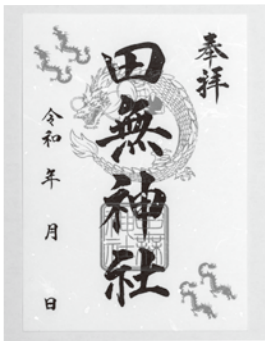 奉拝
田無神社
令和 年 月 日